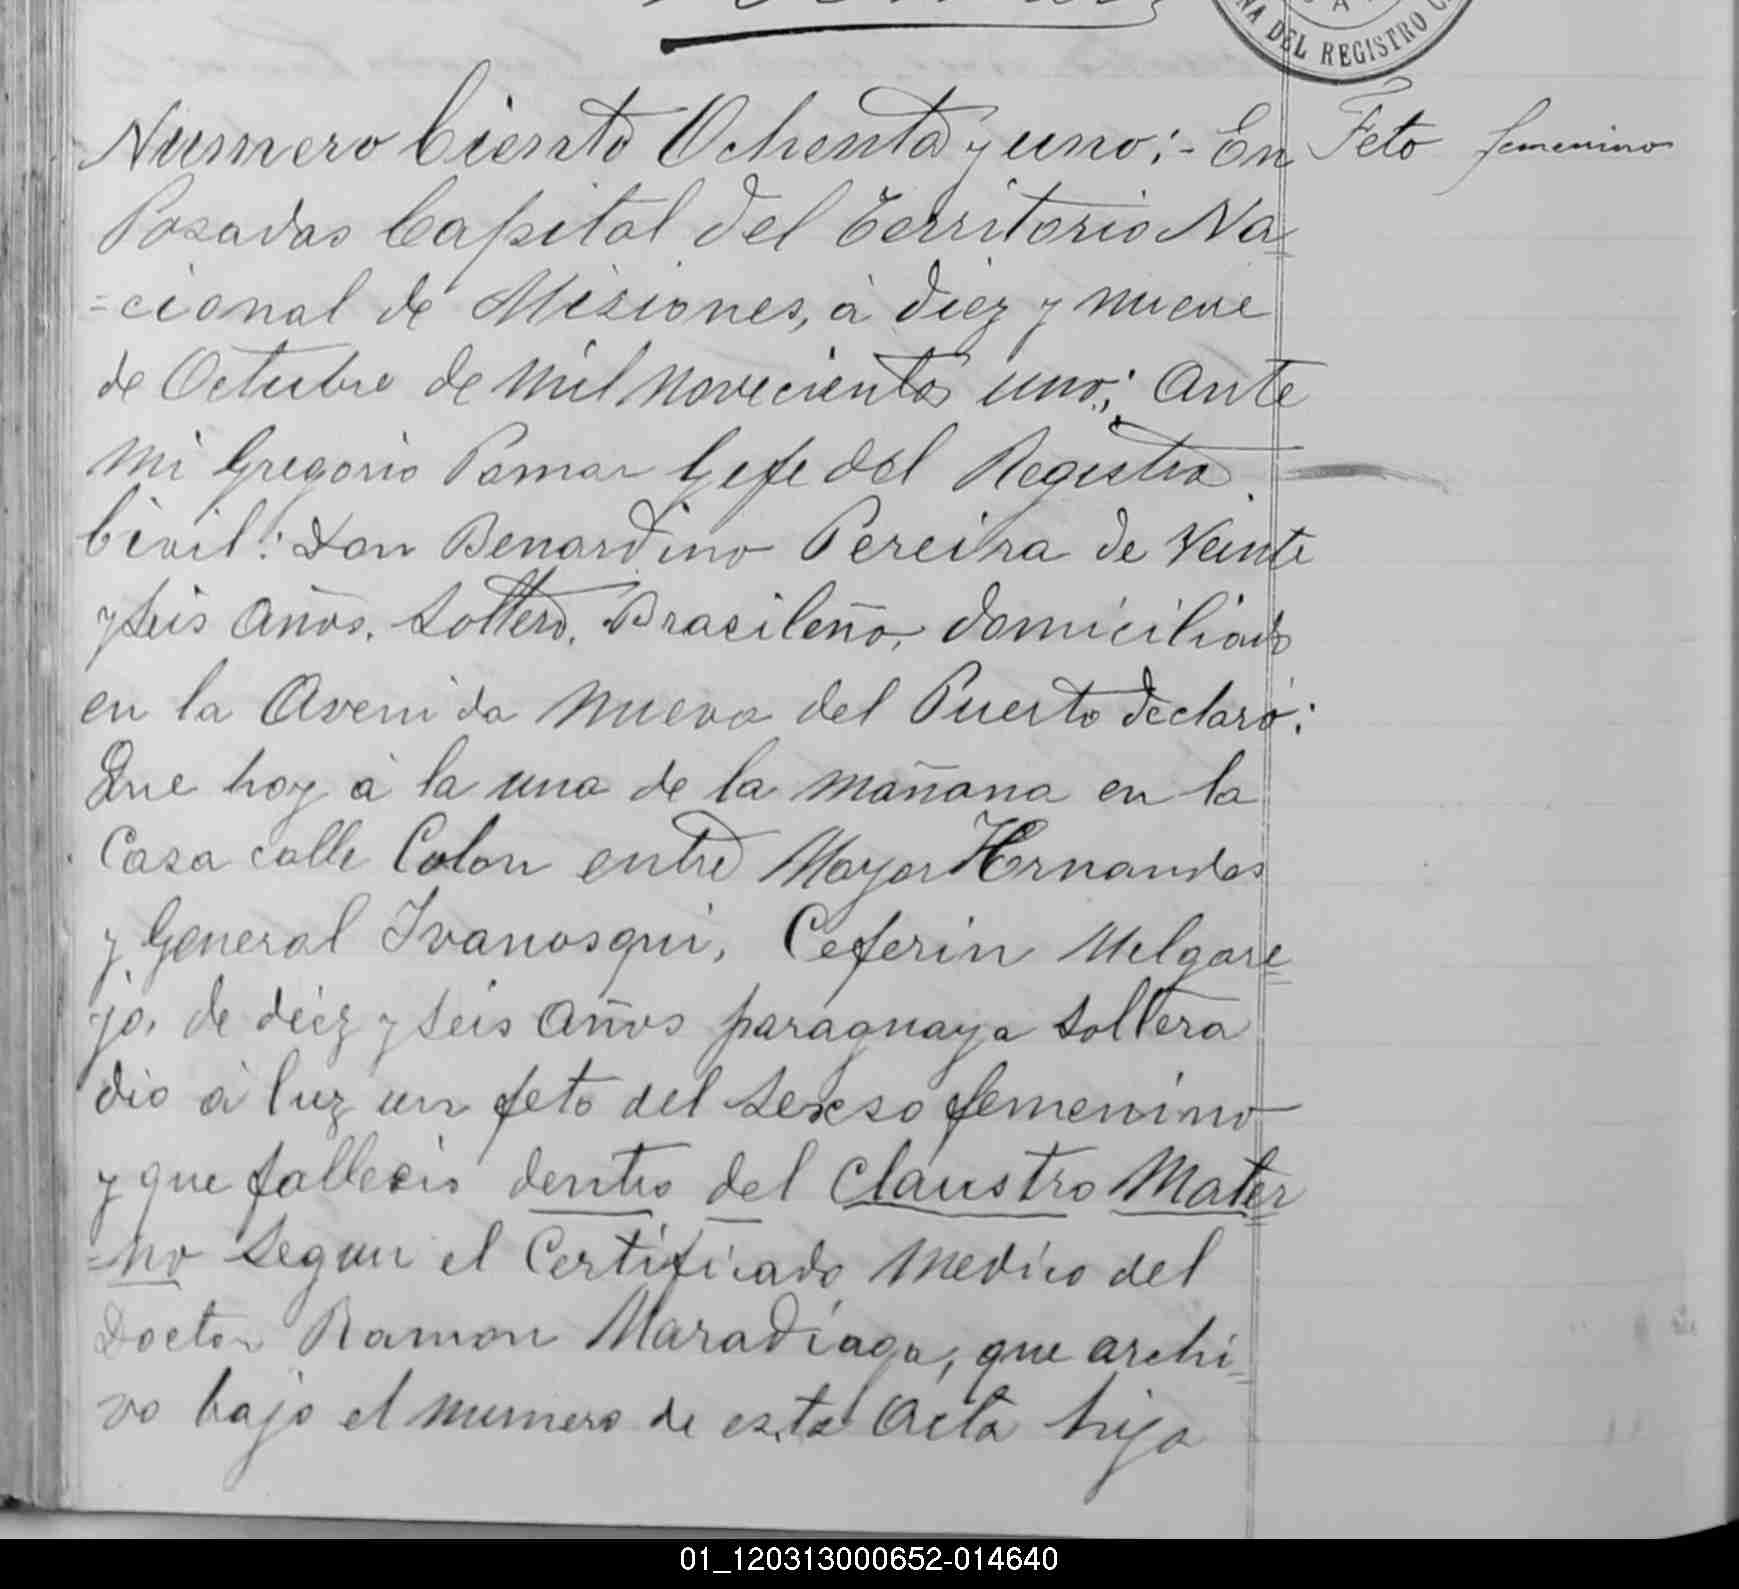 NA DEL REGISTRO C
Numero Ciento Ochenta y uno:- En
Feto femenino
Posadas Capital del Territorio Na
=cional de Misiones, à diez y nueve
de Octubre de mil novecientos uno; Ante
mi Gregorio Pomar Gefe del Registro
Civil: Don Benardino Pereira de Veinte
y seis años, soltero, Brasileño, domiciliado
en la Avenida Nueva del Puerto declaró:
Que hoy à la una de la mañana en la
Casa calle Colon entre Mayor Hernandes
y General Ivanosqui, Ceferin Melgare
jo, de diez y seis años paraguaya soltera
dio à luz un feto del sexso femenino
y que fallecio dentro del Claustro Mater
=no segun el Certificado Medico del
Doctor Ramon Maradiaga, que archi
vo bajo el numero de esta Acta hija
01_120313000652-014640